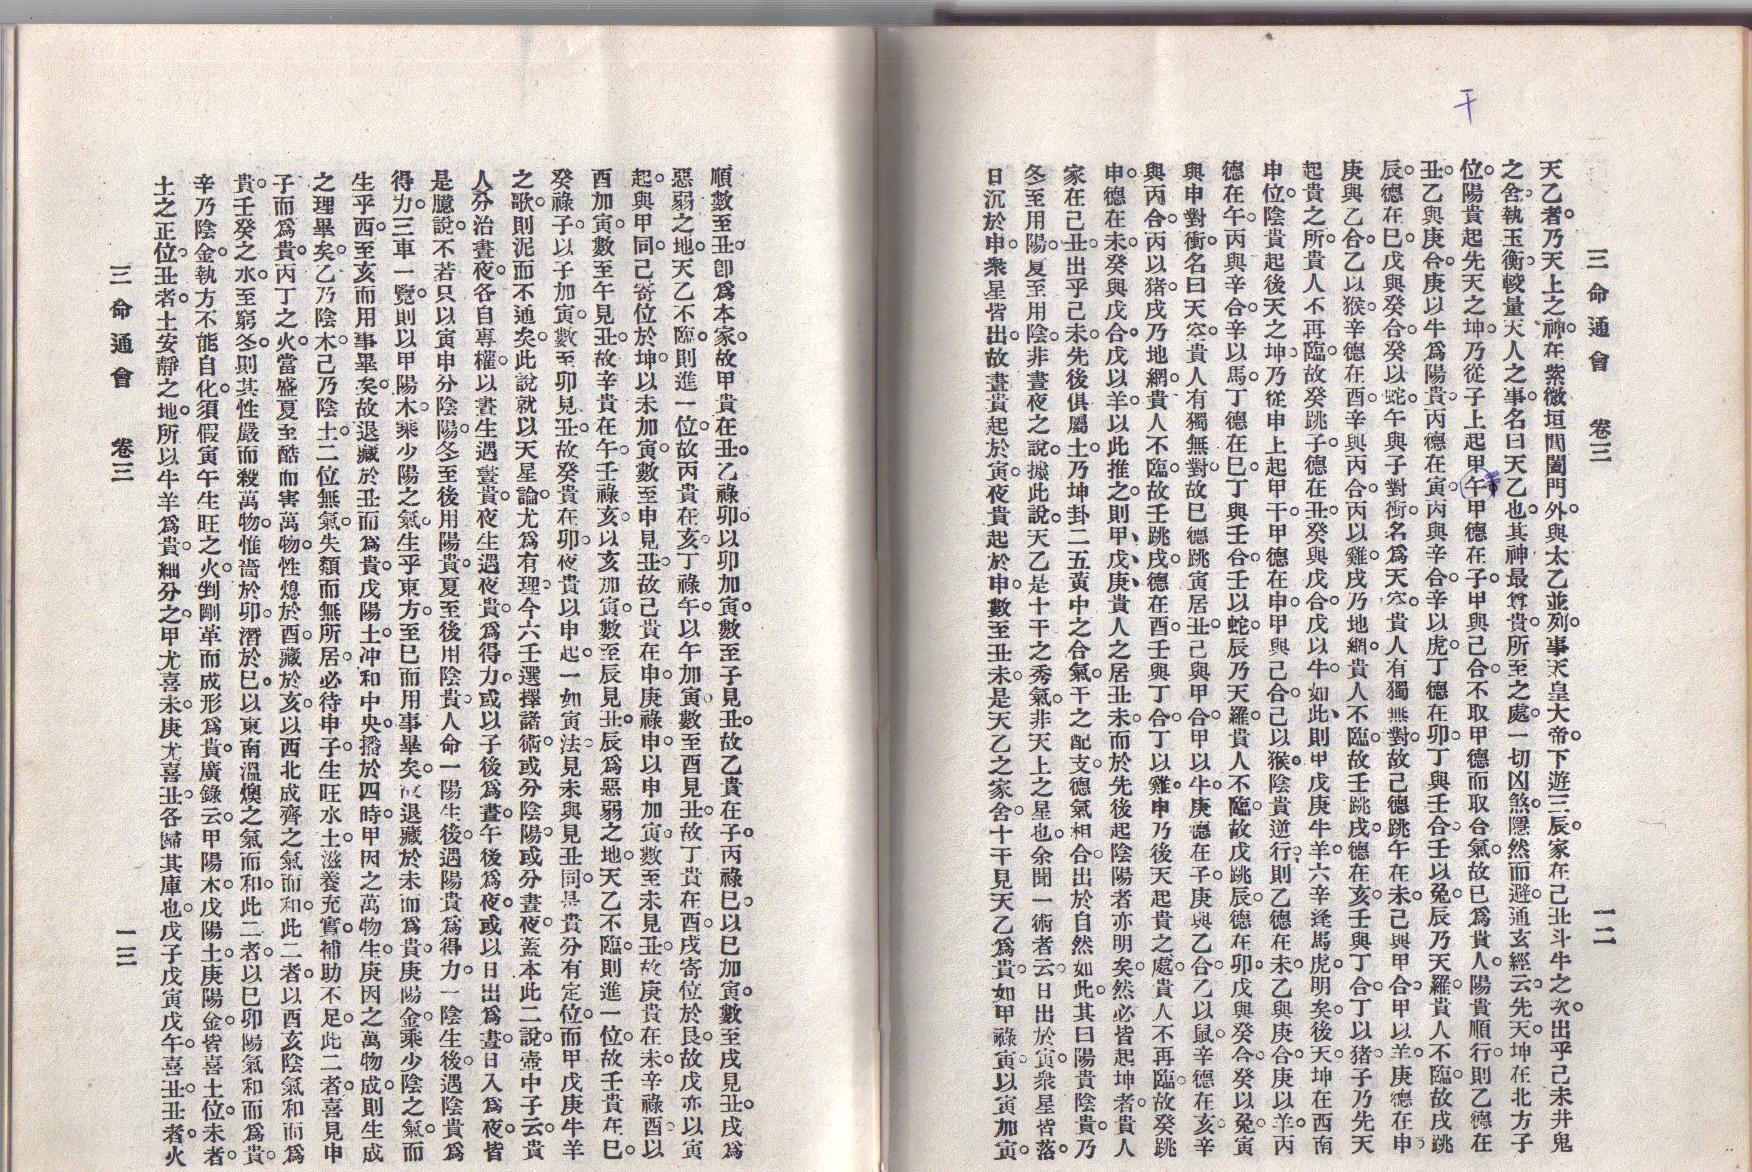 干
三命通會　卷三　一二
天乙者。乃天上之神。在紫微垣閶闔門外。與太乙並列。事天皇大帝。下遊三辰。家在己丑斗牛之次。出乎己未井鬼
之舍。執玉衡。較量天人之事。名曰天乙也。其神最尊貴。所至之處。一切凶煞。隱然而避。通玄經云。先天坤在北方子
位。陽貴起先天之坤。乃從子上起甲午甲德在子。甲與己合。不取甲德而取合氣。故已爲貴人。陽貴順行。則乙德在
丑。乙與庚合。庚以牛爲陽貴。丙德在寅。丙與辛合。辛以虎。丁德在卯。丁與壬合。壬以兔。辰乃天羅。貴人不臨。故戌跳
辰。德在巳。戊與癸合。癸以蛇。午與子對衝。名爲天空。貴人有獨無對。故己德跳午在未。己與甲合。甲以羊。庚德在申。
庚與乙合。乙以猴。辛德在酉。辛與丙合。丙以雞。戌乃地網。貴人不臨。故壬跳戌。德在亥。壬與丁合。丁以猪。子乃先天
起貴之所。貴人不再臨。故癸跳子。德在丑。癸與戊合。戊以牛。如此、則甲戊庚牛羊。六辛逢馬虎明矣。後天坤在西南
申位。陰貴起後天之坤。乃從申上起甲干。甲德在申。甲與己合。己以猴。陰貴逆行。則乙德在未。乙與庚合。庚以羊。丙
德在午。丙與辛合。辛以馬。丁德在巳。丁與壬合。壬以蛇。辰乃天羅。貴人不臨。故戊跳辰。德在卯。戊與癸合。癸以兔。寅
與申對衝。名曰天空。貴人有獨無對。故巳德跳寅居丑。己與甲合。甲以牛。庚德在子。庚與乙合。乙以鼠。辛德在亥。辛
與丙合。丙以猪。戌乃地網。貴人不臨。故壬跳戌。德在酉。壬與丁合。丁以雞。申乃後天起貴之處。貴人不再臨。故癸跳
申。德在未。癸與戊合。戊以羊。以此推之。則甲、戊、庚、貴人之居丑未。而於先後起陰陽者亦明矣。然必皆起坤者。貴人
家在己丑。出乎己未。先後俱屬土。乃坤卦二五黃中之合氣。干之配支。德氣相合。出於自然如此。其曰陽貴陰貴。乃
冬至用陽。夏至用陰。非晝夜之說。據此說。天乙是十干之秀氣。非天上之星也。余聞一術者云。日出於寅。衆星皆落。
日沉於申。衆星皆出。故晝貴起於寅。夜貴起於申。數至丑未。是天乙之家舍。十干見天乙爲貴。如甲祿寅。以寅加寅。
順數至丑。卽爲本家。故甲貴在丑。乙祿卯。以卯加寅。數至子見丑。故乙貴在子。丙祿巳。以巳加寅。數至戌見丑。戌爲
惡弱之地。天乙不臨。則進一位。故丙貴在亥。丁祿午。以午加寅。數至酉見丑。故丁貴在酉。戌寄位於艮。故戊亦以寅
起。與甲同。己寄位於坤。以未加寅。數至申見丑。故己貴在申。庚祿申。以申加寅。數至未見丑。故庚貴在未。辛祿酉。以
酉加寅。數至午見丑。故辛貴在午。壬祿亥。以亥加寅。數至辰見丑。辰爲惡弱之地。天乙不臨。則進一位。故壬貴在巳。
癸祿子。以子加寅。數至卯見丑。故癸貴在卯。夜貴以申起。一如寅法。見未與見丑同。是貴分有定位。而甲戊庚牛羊
之歌。則泥而不通矣。此說就以天星論。尤爲有理。今六壬選擇諸術。或分陰陽。或分晝夜。蓋本此二說。壺中子云。貴
人分治晝夜。各自專權。以晝生遇晝貴。夜生遇夜貴。爲得力。或以子後爲晝。午後爲夜。或以日出爲晝。日入爲夜。皆
是臆說。不若只以寅申分陰陽。冬至後用陽貴。夏至後用陰貴。人命一陽生後。遇陽貴爲得力。一陰生後。遇陰貴爲
得力。三車一覽。則以甲陽木。乘少陽之氣。生乎東方。至巳而用事畢矣。故退藏於未而爲貴。庚陽金。乘少陰之氣。而
生乎酉。至亥而用事畢矣。故退藏於丑而爲貴。戊陽土。沖和中央。播於四時。甲因之萬物生。庚因之萬物成。則生成
之理畢矣。乙乃陰木。己乃陰土。二位無氣。失類而無所居。必待申子。生旺水土。滋養充實。補助不足。此二者。喜見申
子而爲貴。丙丁之火。當盛夏至酷而害萬物。性熄於酉。藏於亥。以西北成齊之氣而和。此二者。以酉亥陰氣和而爲
貴。壬癸之水。至窮冬。則其性嚴而殺萬物。惟嗇於卯。潛於巳。以東南溫燠之氣而和。此二者。以巳卯陽氣和而爲貴。
辛乃陰金。執方不能自化。須假寅午生旺之火。剉剛革而成形爲貴。廣錄云。甲陽木。戊陽土。庚陽金。皆喜土位。未者。
土之正位。丑者。土安靜之地。所以牛羊爲貴。細分之。甲尤喜未。庚尤喜丑。各歸其庫也。戊子戊寅戊午。喜丑。丑者。火
三命通會　卷三　一三